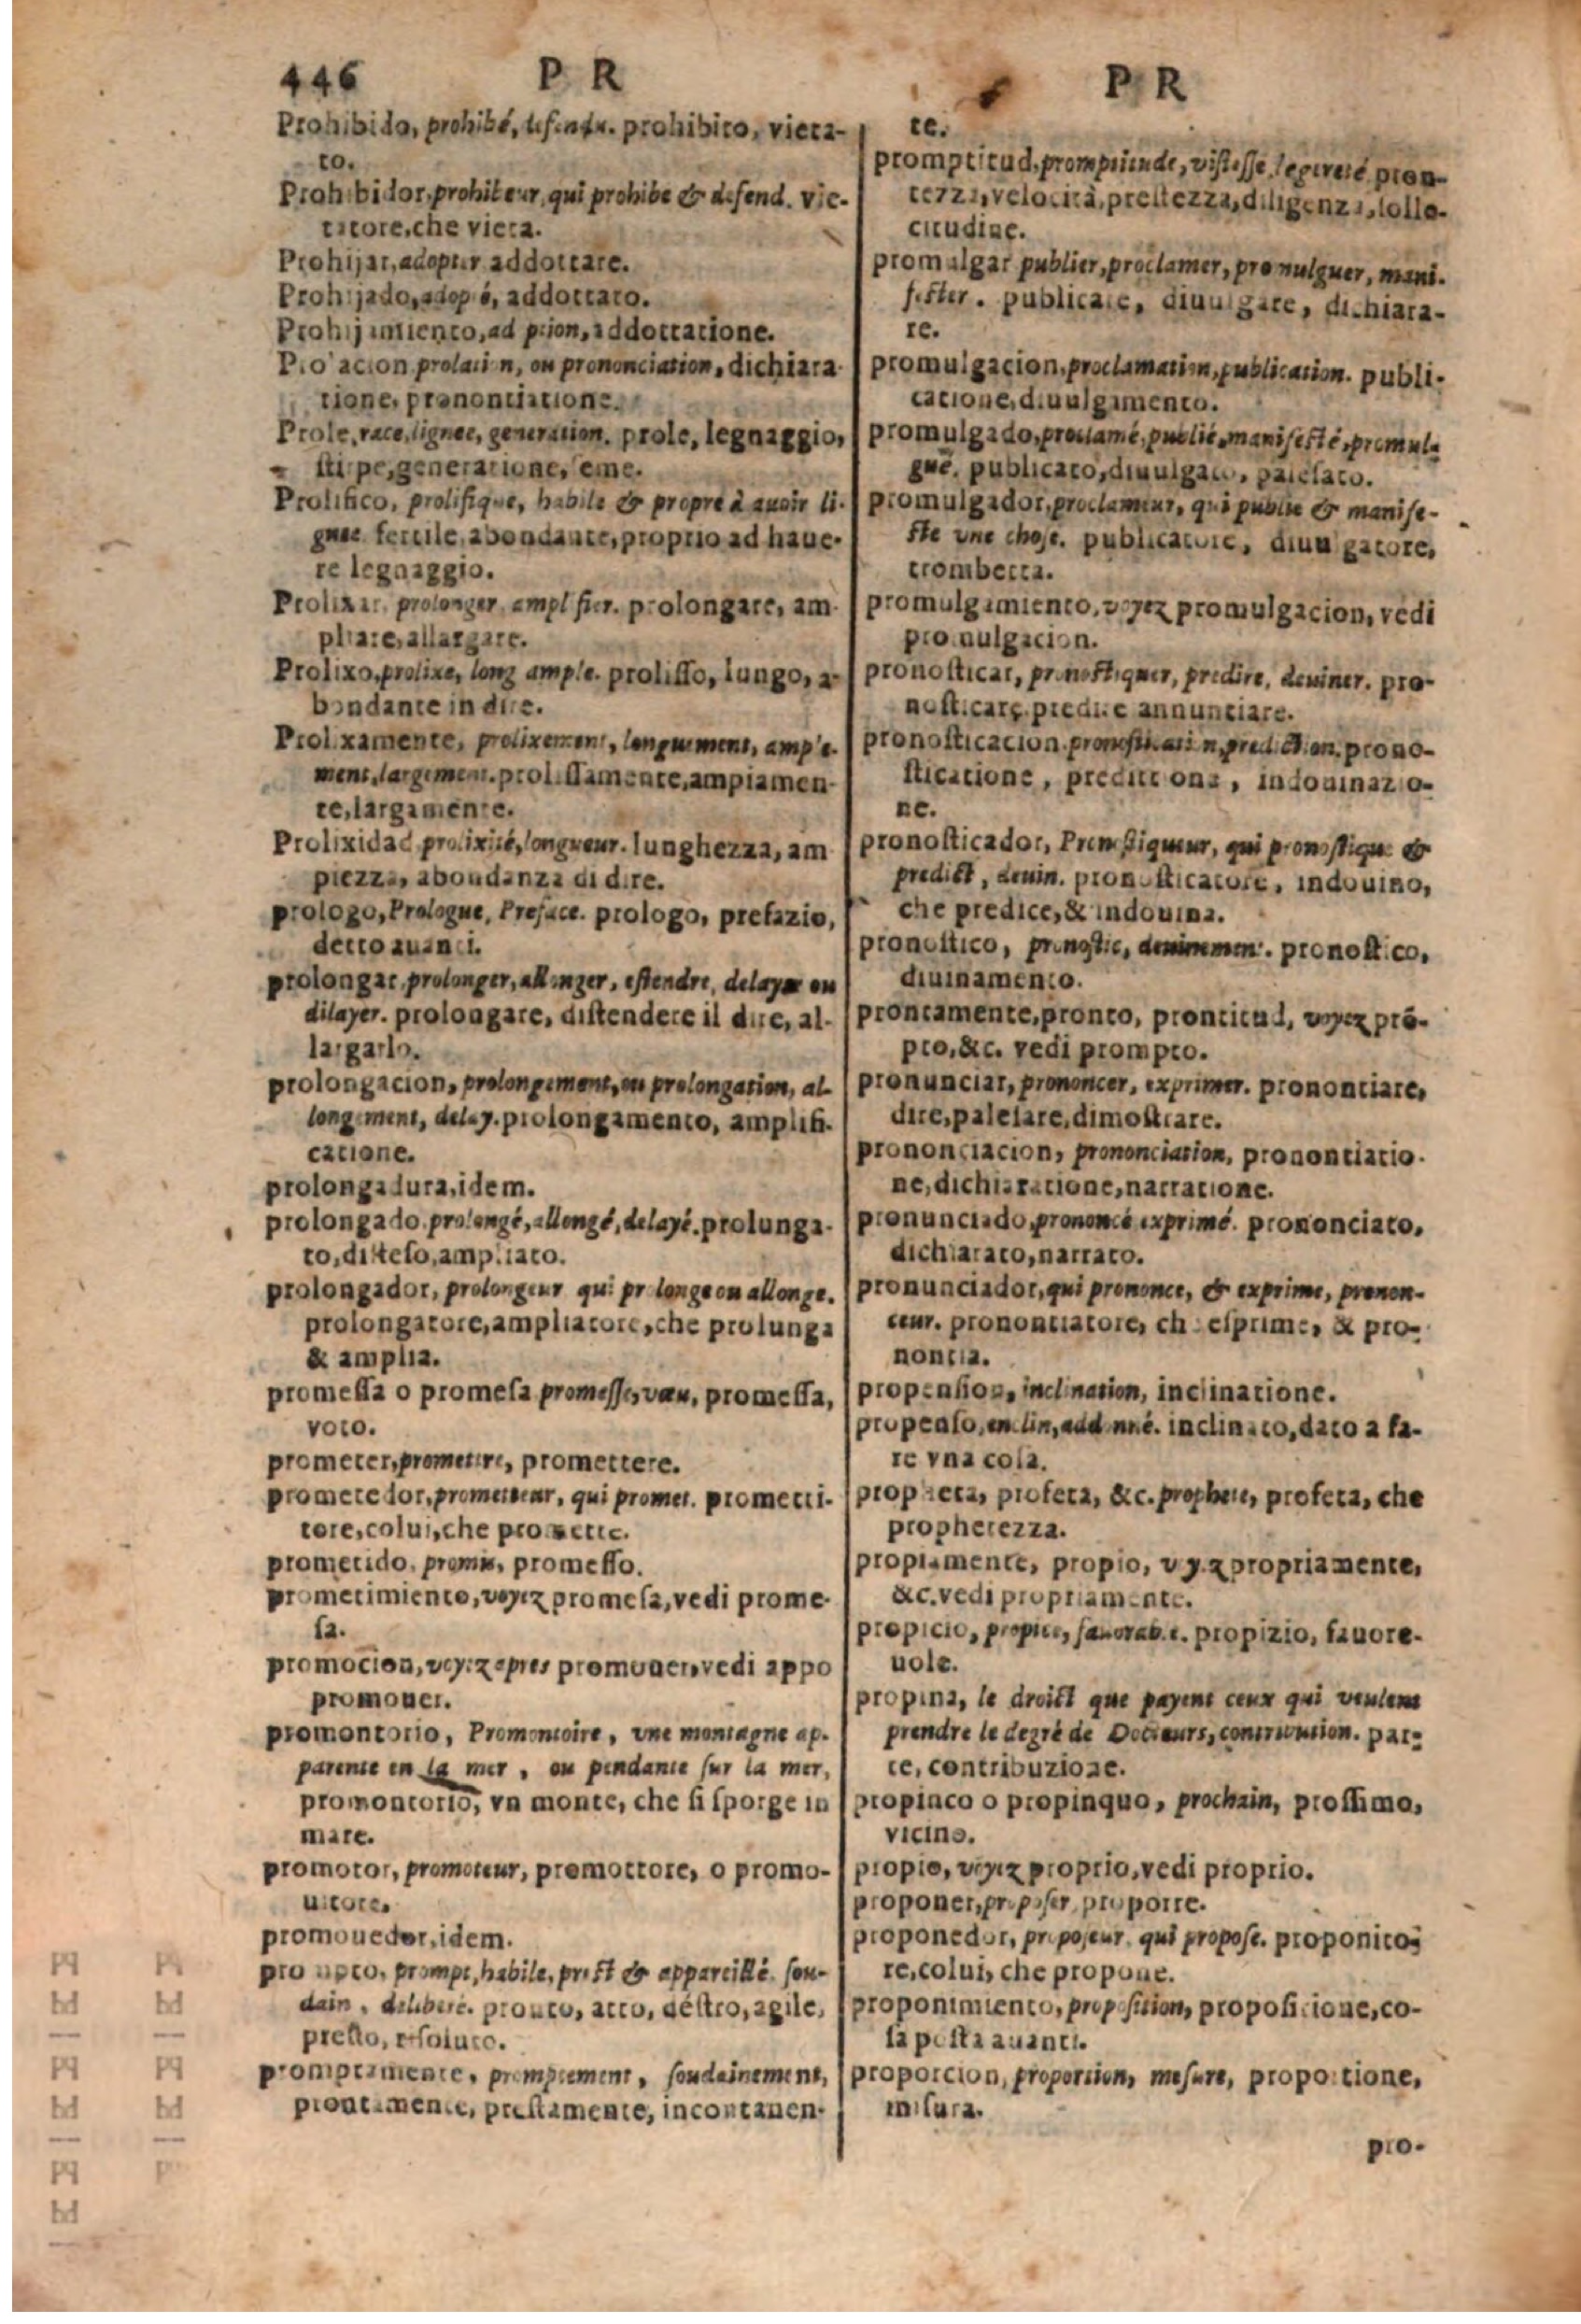 446 P R P R
Prohibido, prohibé, defendu. prohibito, vieta-
to.
Prohibidor, prohibeur, qui prohibe & defend. vie-
tatore, che vieta.
Prohijar, adopter addottare.
Prohijado, adopté, addottato.
Prohijamiento, adoption, addottatione.
Prolacion prolation, ou prononciation, dichiara-
tione, prononciatione.
Prole, race, lignee, generation. prole, legnaggio,
stirpe, generatione, seme.
Prolifico, prolifique, habile & propre à auoir li-
gnee fertile, abondante, proprio ad haue-
re legnaggio.
Prolixar, prolonger, amplifier. prolongare, am-
pliare, allargare.
Prolixo, prolixe, long ample. prolisso, lungo, a-
bondante in dire.
Prolixamente, prolixement, longuement, ample-
ment, largement. prolissamente, ampiamen-
te, largamente.
Prolixidad prolixité, longueur. lunghezza, am
piezza, abondanza di dire.
prologo, Prologue, Preface. prologo, prefazio,
detto auanti.
prolongar, prolonger, allonger, estendre, delayer ou
dilayer. prolongare, distendere il dire, al-
largarlo.
prolongacion, prolongement, ou prolongation, al-
longement, delay. prolongamento, amplifi-
catione.
prolongadura, idem.
prolongado, prolongé, allongé, delayé. prolunga-
to, disteso, ampliato.
prolongador, prolongeur qui prolonge ou allonge.
prolongatore, ampliatore, che prolunga
& amplia.
promessa o promesa promesse, vœu, promessa,
voto.
prometer, promettre, promettere.
prometedor, prometteur, qui promet. prometti-
tore, colui, che promette.
prometido, promis, promesso.
prometimiento, voyez promesa, vedi prome-
sa.
promocion, voyez apres promouer, vedi appo
promouer.
promontorio, Promontoire, vne montagne ap-
parente en la mer, ou pendante sur la mer,
promontorio, vn monte, che si sporge in
mare.
promotor, promoteur, promottore, o promo-
uitore.
promouedor, idem.
prompto, prompt, habile, prest & appareillé. sou-
dain, deliberé. pronto, atto, destro, agile,
presto, resoluto.
promptamente, promptement, soudainement,
prontamente, prestamente, incontanen-
te.
promptitud, promptitude, vistesse, legereté pron-
tezza, velocità, prestezza, diligenza, solle-
citudine.
promulgar publier, proclamer, promulguer, mani-
fester. publicare, diuulgare, dichiara-
re.
promulgacion, proclamation, publication. publi-
catione, diuulgamento.
promulgado, proclamé, publié, manifesté, promul-
gué. publicato, diuulgato, palesato.
promulgador, proclameur, qui publie & manife-
ste vne chose. publicatore, diuulgatore,
trombetta.
promulgamiento, voyez promulgacion, vedi
promulgacion.
pronosticar, pronostiquer, predire, deuiner. pro-
nosticare, predire annuntiare.
pronosticacion, pronostication, prediction. prono-
sticatione, predittione, indouinazio-
ne.
pronosticador, Pronostiqueur, qui pronostique &
predict, deuin. pronosticatore, indouino,
che predice, & indouina.
pronostico, pronostic, deuinement. pronostico,
diuinamento.
prontamente, pronto, prontitud, voyez prõ-
pto, &c. vedi prompto.
pronunciar, prononcer, exprimer. prononciare,
dire, palesare, dimostrare.
prononciacion, prononciation, prononciatio-
ne, dichiaratione, narratione.
pronunciado, prononcé exprimé. prononciato,
dichiarato, narrato.
pronunciador, qui prononce, & exprime, pronon-
ceur. prononciatore, che esprime, & pro-
noncia.
propension, inclination, inclinatione.
propenso, enclin, addonné. inclinato, dato a fa-
re vna cosa.
propheta, profeta, &c. prophete, profeta, che
propherezza.
propiamente, propio, voyez propriamente,
&c. vedi propriamente.
propicio, propice, fauorable. propizio, fauore-
uole.
propina, le droict que payent ceux qui veulent
prendre le degré de Docteurs, contribution. par-
te, contribuzione.
propinco o propinquo, prochain, prossimo,
vicino.
propio, voyez proprio, vedi proprio.
proponer, proposer, proporre.
proponedor, proposeur, qui propose. proponito-
re, colui, che propone.
proponimiento, proposition, propositione, co-
sa posta auanti.
proporcion, proportion, mesure, proportione,
misura.
pro-